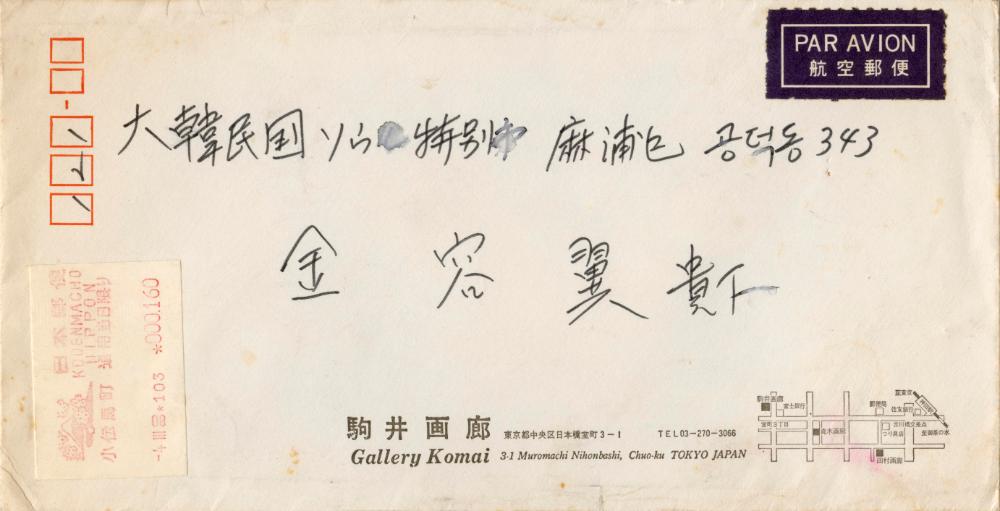 PAR AVION
航空郵便
121
大韓民国 ソウル特別市 麻浦区 공덕동 343
金容翼 貴下
日本郵便
KODENMACHO
NIPPON
小伝馬町
*000.160
駒井画廊 東京都中央区日本橋室町3-1 TEL 03-270-3066
Gallery Komai 3-1 Muromachi Nihonbashi, Chuo-ku TOKYO JAPAN
駒井画廊
富士銀行
室町3丁目
真木画廊
郵便局
住友銀行
つり具店
田村画廊
至御茶の水